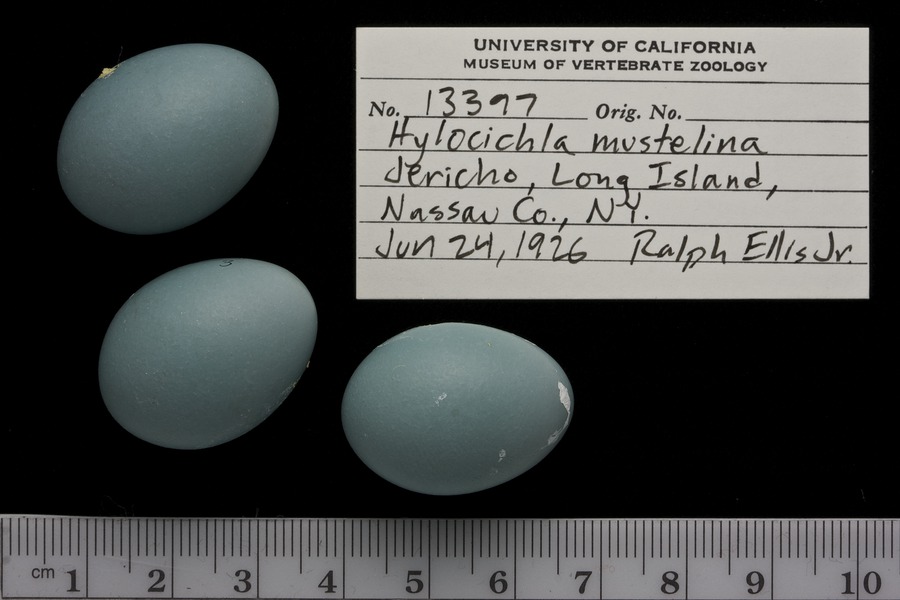 UNIVERSITY OF CALIFORNIA
MUSEUM OF VERTEBRATE ZOOLOGY
No. 13397 Orig. No.
Hylocichla mustelina
Jericho, Long Island,
Nassau Co., NY.
Jun 24, 1926 Ralph Ellis Jr.
3
cm 1 2 3 4 5 6 7 8 9 10